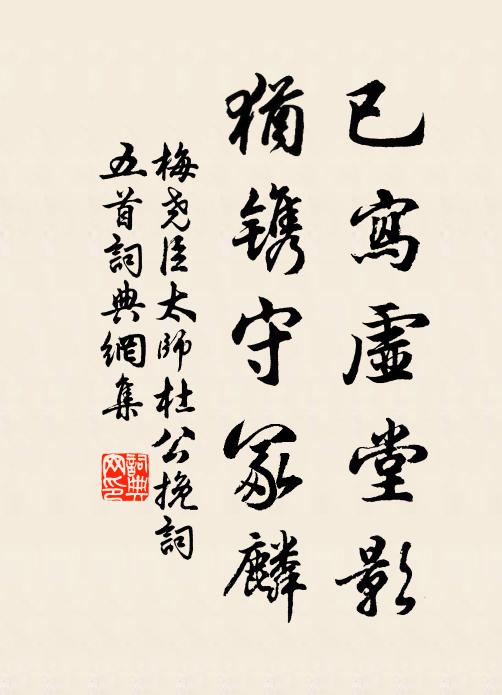 已寫虛堂影
猶镌守冢麟
梅尧臣太師杜公挽詞
五首詞典網集
詞典
网印